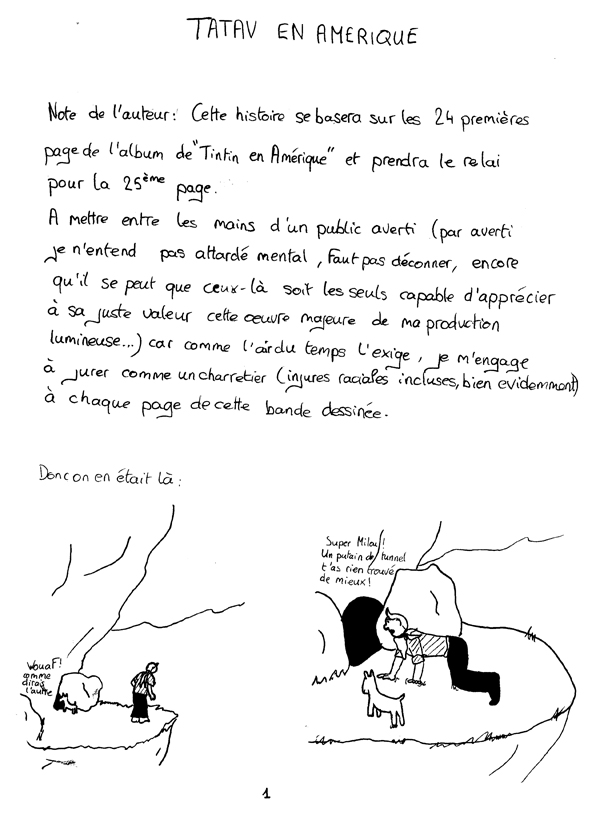 TATAV EN AMERIQUE
Note de l'auteur: Cette histoire se basera sur les 24 premières
page de l'album de "Tintin en Amérique" et prendra le relai
pour la 25ème page.
A mettre entre les mains d'un public averti (par averti
je n'entend pas attardé mental, faut pas déconner, encore
qu'il se peut que ceux-là soit les seuls capable d'apprécier
à sa juste valeur cette œuvre majeure de ma production
lumineuse...) car comme l'air du temps l'exige, je m'engage
à jurer comme un charretier (injures raciales incluses, bien evidemment)
à chaque page de cette bande dessinée.
Donc on en était là :
Wouaf!
comme
dirais
l'autre
Super Milou!
Un putain de tunnel
t'as rien trouvé
de mieux!
1